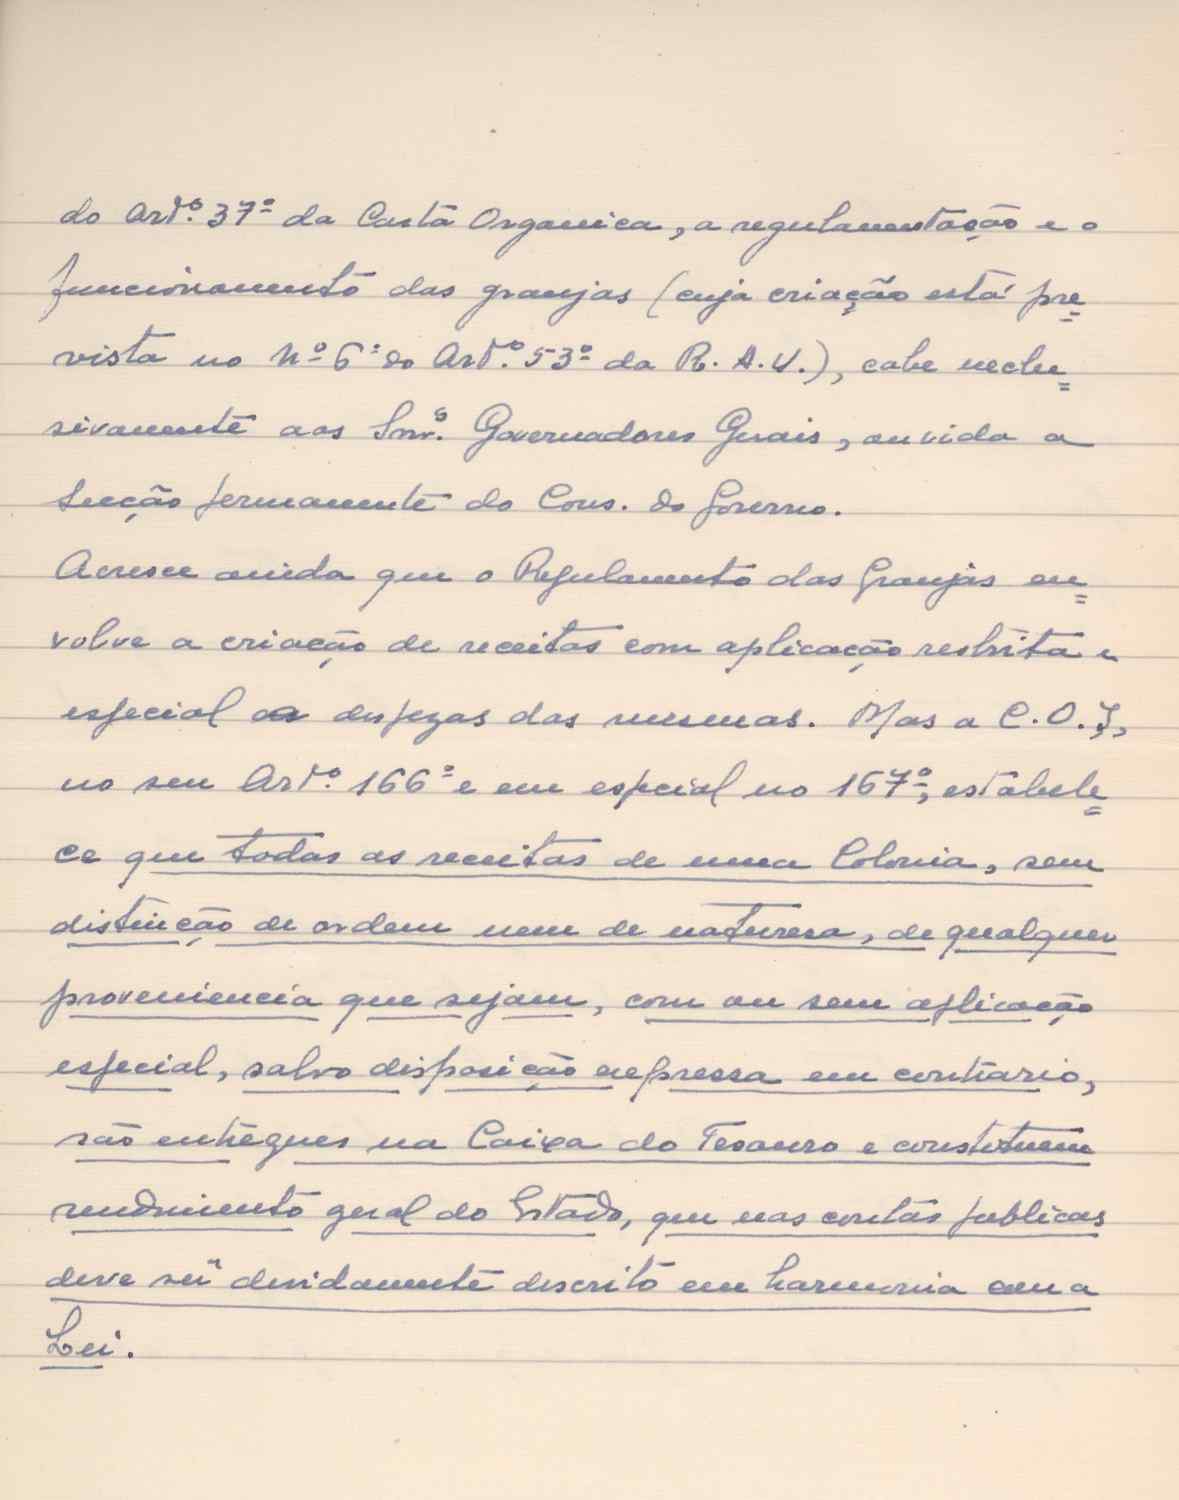 do Artº. 37º da Carta Organica, a regulamentação e o
funcionamento das granjas (cuja criação está pre=
vista no nº 6º do Artº. 53º da R. A. U.), cabe exclu=
sivamente aos Snrs. Governadores Gerais, ouvida a
Secção permanente do Cons. do Governo.
Acresce ainda que o Regulamento das Granjas en=
volve a criação de receitas com aplicação restrita e
especial as despezas das mesmas. Mas a C. O.
no seu Artº. 166º e em especial no 167º, estabele=
ce que todas as receitas de uma Colonia, sem
distinção de ordem nem de natureza, de qualquer
proveniencia que sejam, com ou sem aplicação
especial, salvo disposição expressa em contrario,
são entregues na Caixa do Tesouro e constituem
rendimento geral do Estado, que nas contas publicas
deve ser devidamente descrito em harmonia com a
Lei.